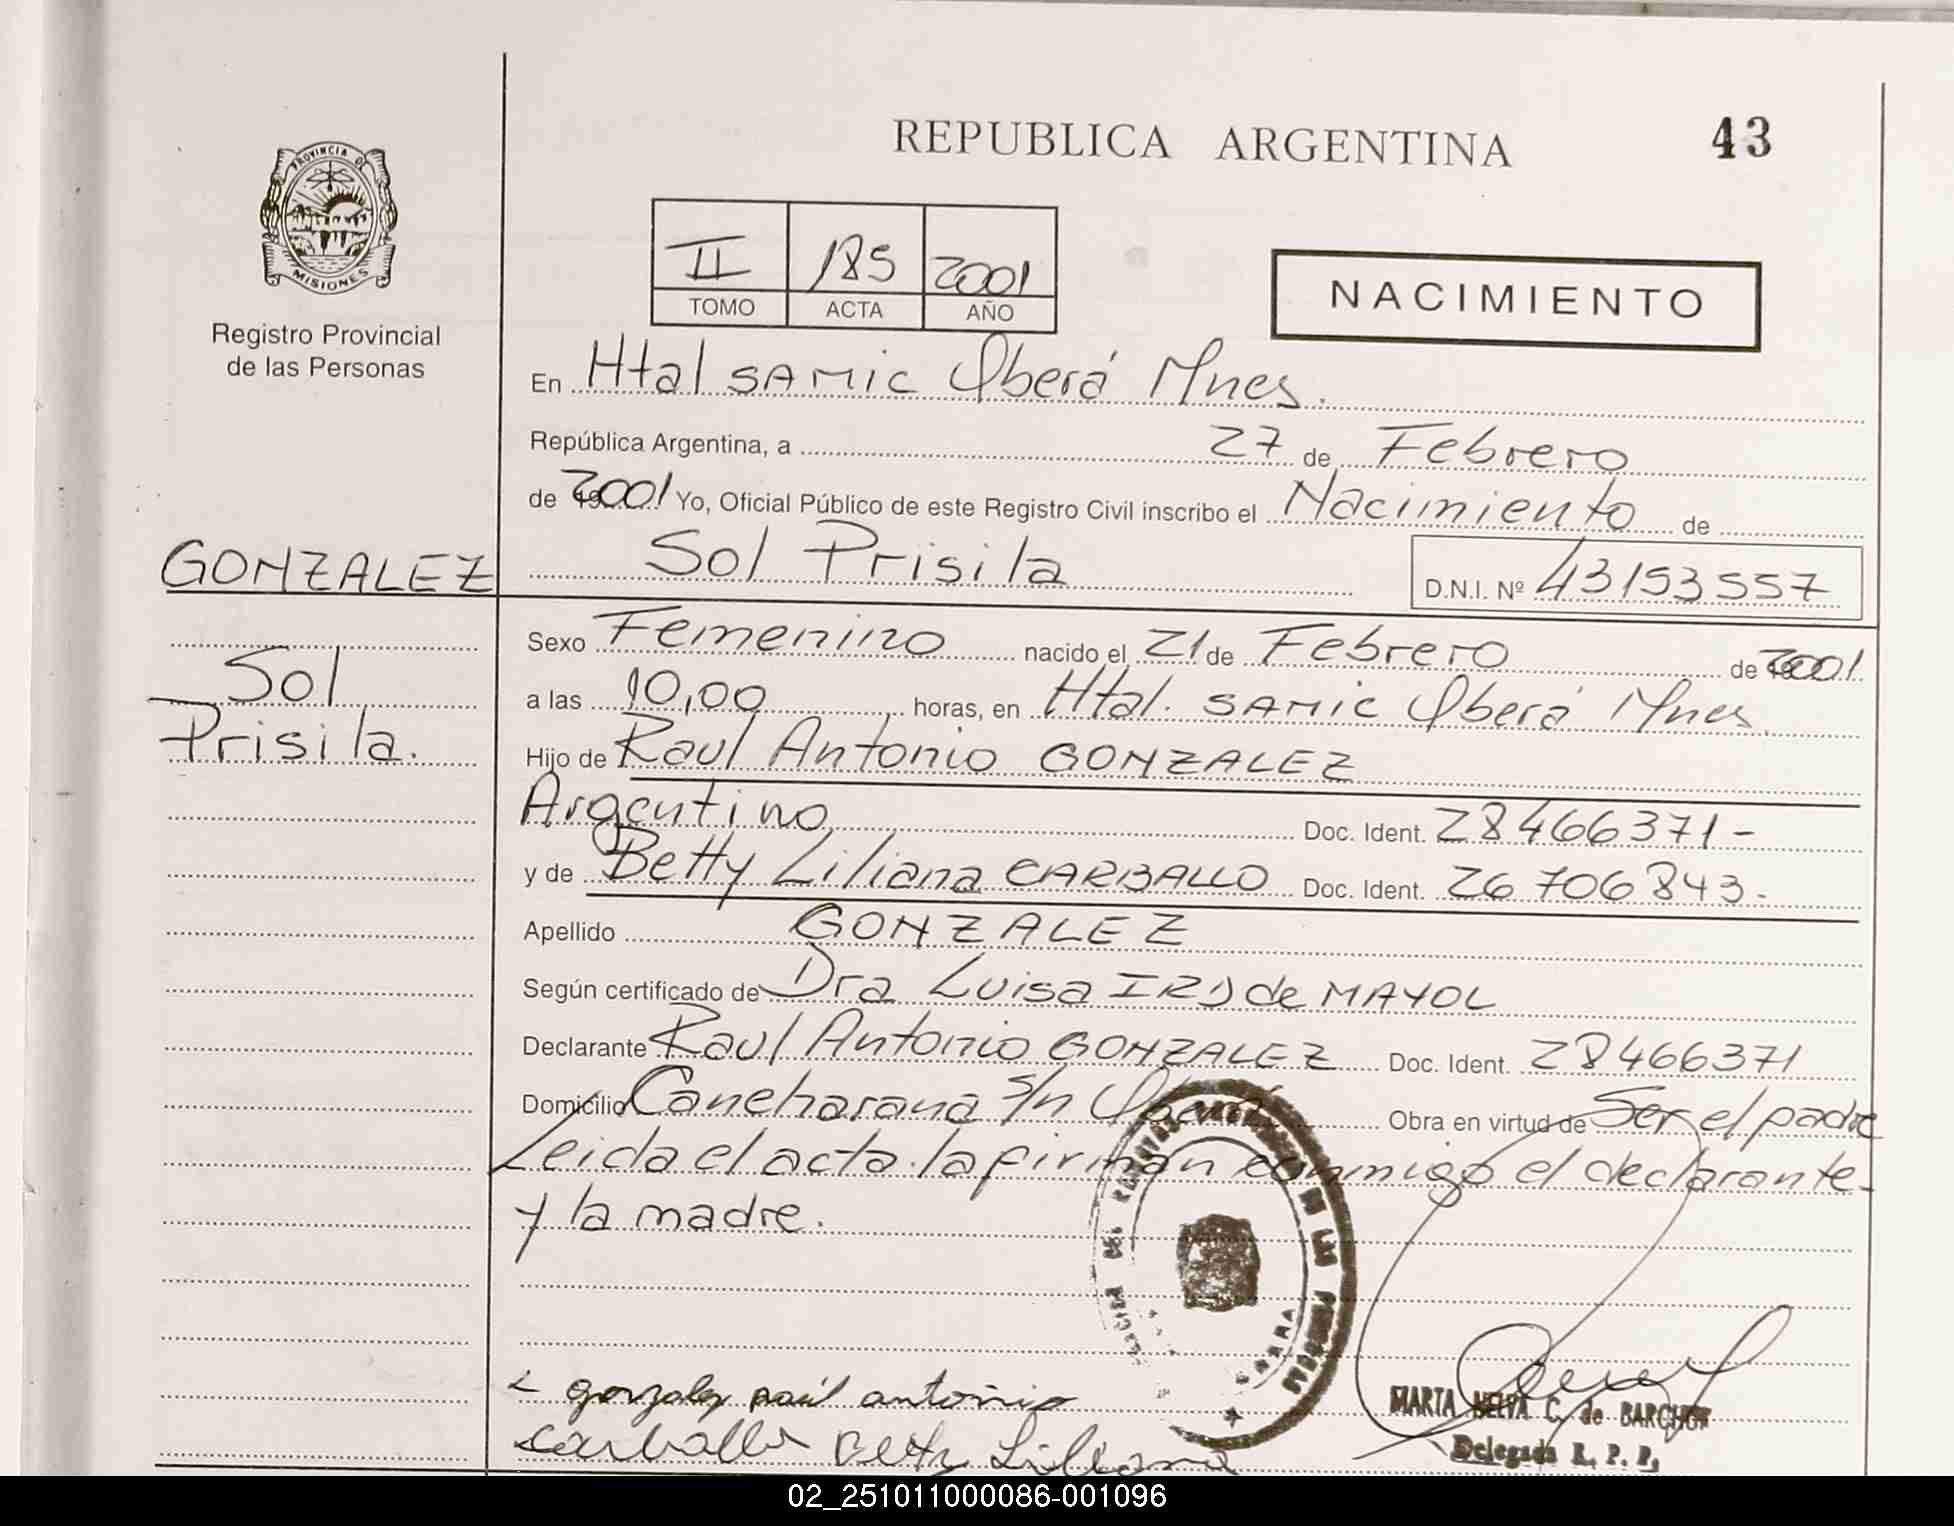 REPUBLICA ARGENTINA
43
PROVINCIA DE
MISIONES
Registro Provincial
de las Personas
II 185 2001
TOMO ACTA AÑO
NACIMIENTO
En Htal SAMIC Oberá Mnes.
República Argentina, a 27 de Febrero
de 2001 Yo, Oficial Público de este Registro Civil inscribo el Nacimiento de
GONZALEZ
Sol Prisila D.N.I. Nº 43153557
Sexo Femenino nacido el 21 de Febrero de 2001
Sol
Prisila.
a las 10,00 horas, en Htal. SAMIC Oberá Mnes.
Hijo de Raul Antonio GONZALEZ
Argentino Doc. Ident. 28466371-
y de Betty Liliana CARBALLO Doc. Ident. 26706843-
Apellido GONZALEZ
Según certificado de Dra Luisa de MAYOL
Declarante Raul Antonio GONZALEZ Doc. Ident. 28466371
Domicilio Cancharana s/n Oberá Obra en virtud de Ser el padre
Leida el acta la firman conmigo el declarante
y la madre.
gonzalez raúl antonio
carballo Betty Liliana
MARTA NELVA C. de
Delegada R. P. P.
02_251011000086-001096